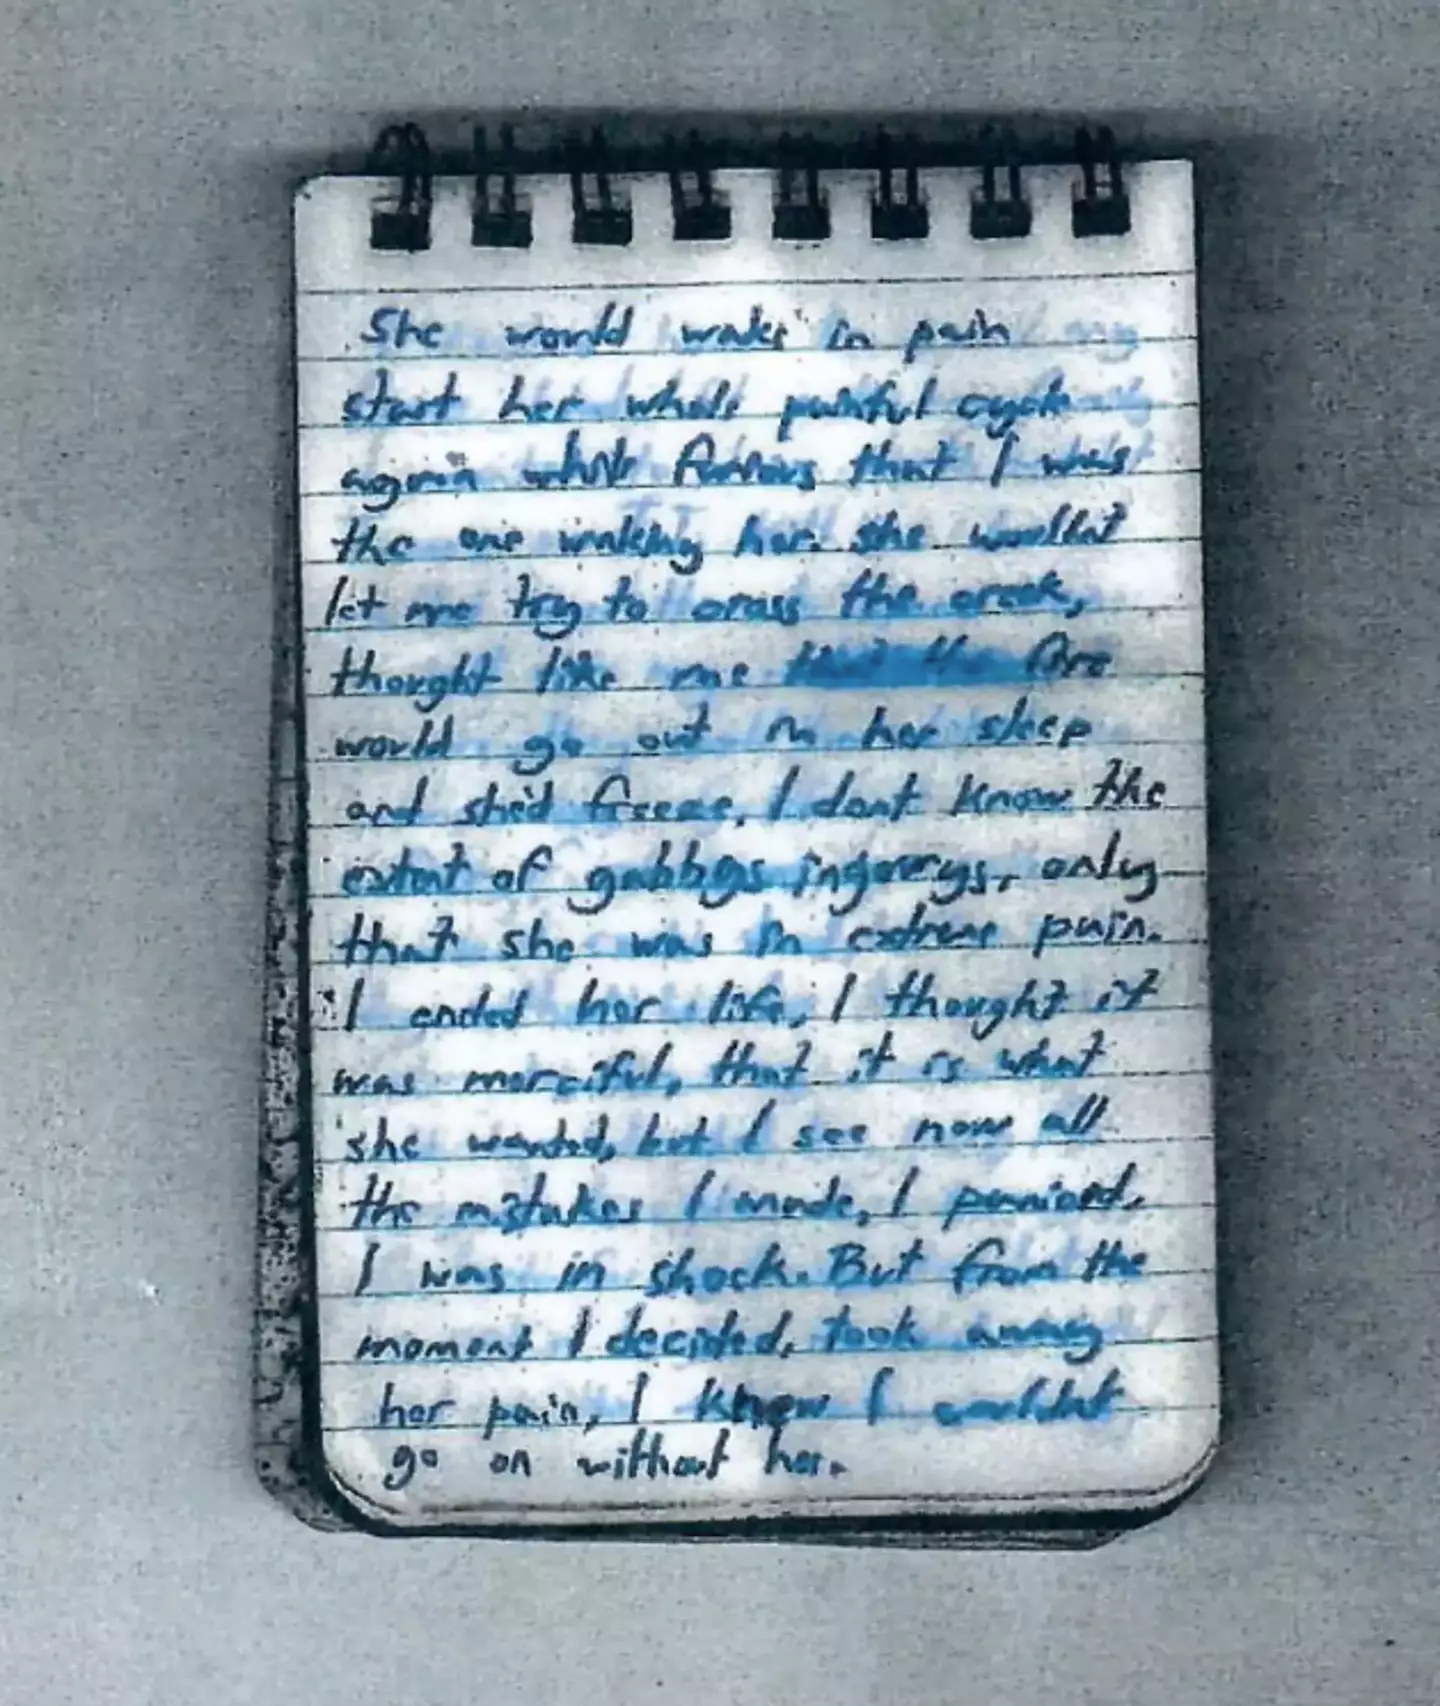 She would wake in pain
start her whole painful cycle
again while furious that I was
the one waking her. she wouldnt
let me try to cross the creek,
thought like me the fire
would go out in her sleep
and she'd freeze. I dont know the
extent of gabbys ingjurys, only
that she was in extreme pain.
I ended her life, I thought it
was merciful, that it is what
she wanted, but I see now all
the mistakes I made, I panicked,
I was in shock. But from the
moment I decided, took away
her pain, I knew I wouldnt
go on without her.